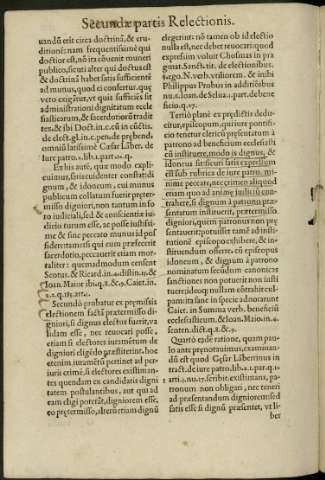 Secundæ partis Relectionis.
uandũ erit circa doctrinã, & eru-
ditionẽ: nam frequentissimè qui
doctior est, nõ ita cõuenit muneri
publico, sicuti alter qui doctus est
& doctrinã habet satis sufficientẽ
ad munus, quod ei confertur.
vero exigitur, vt quis sufficiẽs sit
administrationi dignitatum eccle
siasticarum, & sacerdotiorũ tradit
Doct. in c. cũ in cũctis.
de elect. gl. in c.
omniũ latissimè Cæsar Láber. de
iure patro. 1. lib. 2. part.
Ex his autẽ, quæ modo expli-
cuimus, sat euidenter constat: di
gnum, & idoneum, cui munus
publicum collatum fuerit præter-
misso digniori, non tantum in fo
ro iudiciali, sed & conscientiæ iu-
dicio tutum esse, ac posse iustissi-
mè & sine peccato munus id pos
sidere: tametsi qui eum præfecerit
sacerdotio, peccauerit etiam mor-
taliter: quemadmodum censent
Scotus. & Ricard. in. 4. distin.
Ioan. Maior ibi. q. 2. & 9. Caiet. in.
2. 2. q. 185.
Secundò probatur ex præmissis
electionem factã prætermisso di-
gniori, si dignus electus fuerit, va
lidam esse, nec reuocari posse,
etiam si electores iuramẽtum de
digniori eligẽdo præstiterint. hoc
etenim iuramẽtũ pertinet ad per-
iurii crimẽ. si electores existiman-
tes quendam ex candidatis digni
tatem postulantibus, aut qui ad
eam eligi poterãt, digniorem esse,
eo prætermisso, alterũ etiam dignũ
elegerint: nõ tamen ob id electio
nulla est, nec debet reuocari: quod
expressim voluit
gnat. Sanct. tit. de electionibus.
N. verb. vtiliorem. & inibi
Philippus Probus in additiõibus
Ioan. de Selua. 1. part. de benefi
cio. q.
Tertiò planè ex prædictis dedu-
citur, episcopum, quitur pontifi-
cio tenetur clericũ præsentatum à
patrono ad beneficium ecclesiasti
cũ instituere, modo is dignus, &
idoneus sit, sicuti satis expressum
est sub rubrica de iure patro. mi-
nimè peccare, nec crimen aliquod
etiam quo ad animę iudiciũ con-
trahere, si dignum à patrono præ-
sentatum instituerit, prætermisso
digniori, quem patronus non præ
sentauerit: potuisset tamẽ ad insti-
tutionẽ episcopo exhibere, & in-
stituendum offerre. cũ episcopus
idoneum, & dignum à patrono
nominatum secũdum canonicas
sanctiones non potuerit non insti
tuere: ideoq; nullam cõtrahit cul-
pam: ita sanè in specie adnotarunt
Caie. in Summa verb. beneficiũ
ecclesiasticum. & Ioan. Maio. in. 4.
senten. dict. q. 2. & 9.
Quarto eadẽ ratione, quam pau
lo antè prænotauimus, examinan-
dũ est quod Cesar Libertinus in
tract. de iure patro. lib. 2. 1. par. q. 1.
arti. 2. nu. 17. scribit: existimans, pa-
tronum non obligari, nec teneri
ad præsentandum digniorem: sed
satis esse si dignũ præsentet, vt li
ber